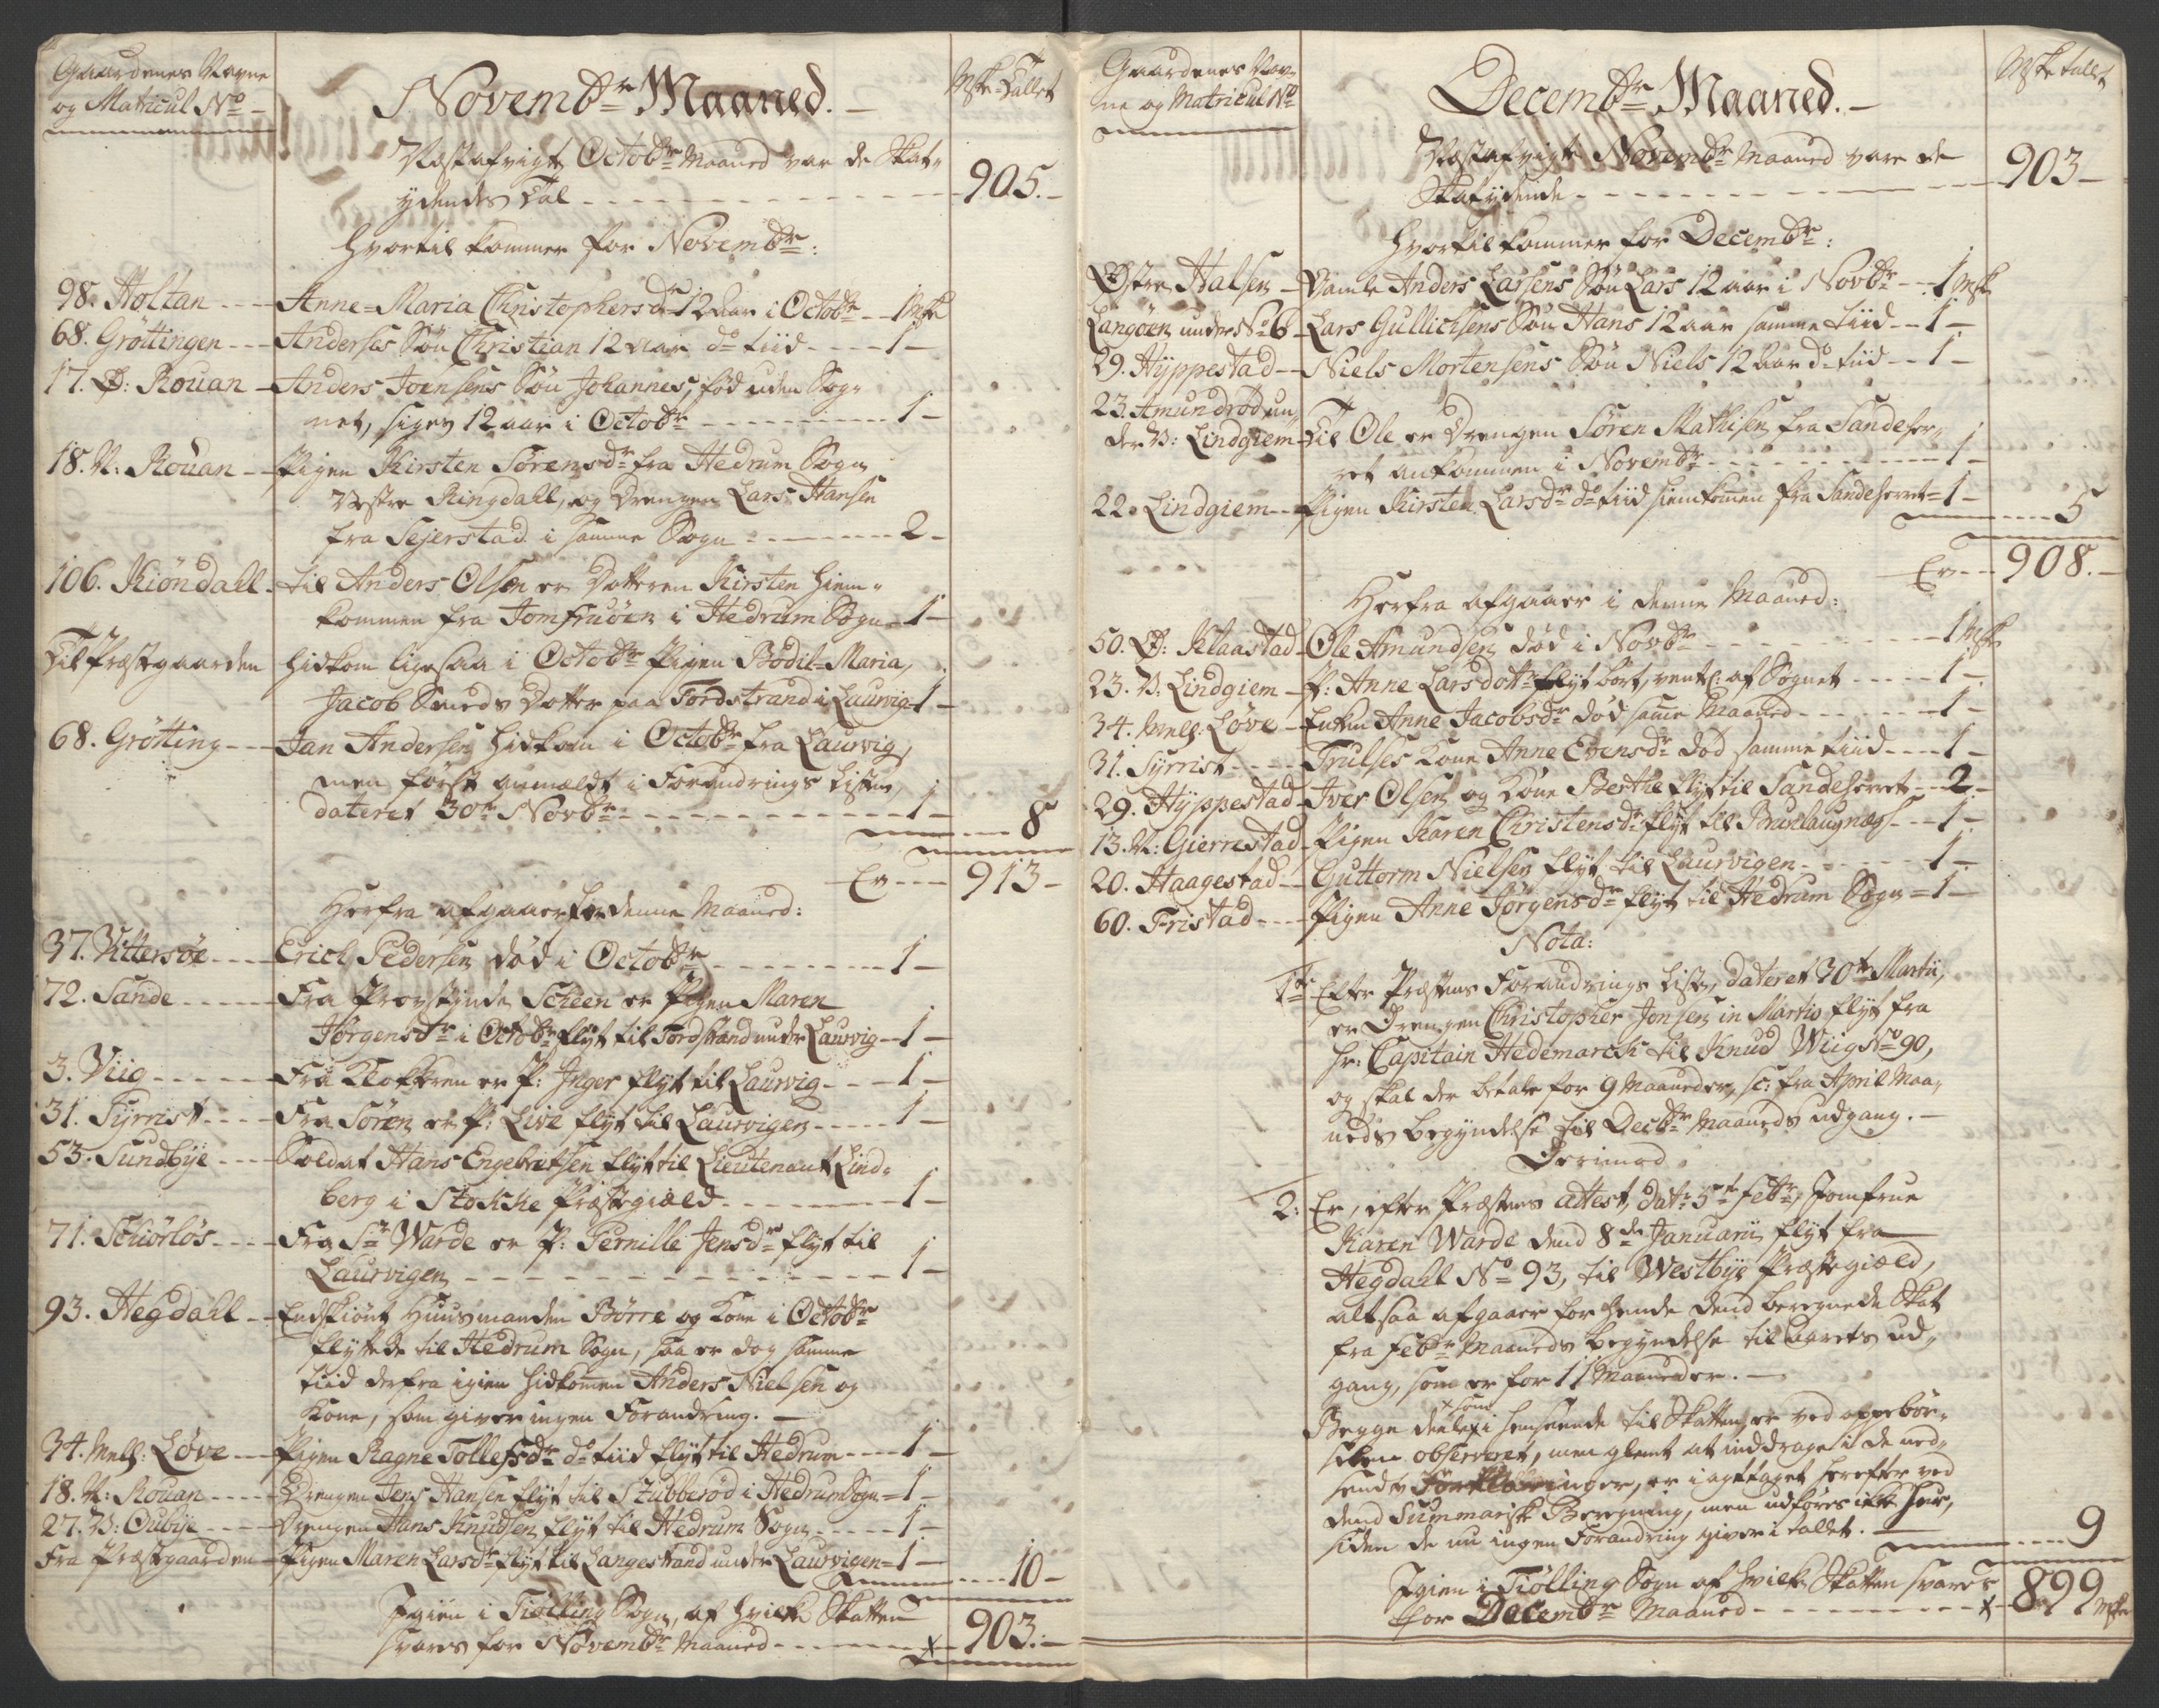 Gaardenes Navne
og Matricul No
Novembr Maaned.
Msk: Tallet
Næstafvigte Octobr Maaned var de Skat-
ydendes Tal 905.
Hvortil kommer for Novembr:
98. Holtan Anne-Maria Christophersdr 12 aar i Octobr 1 Msk
68. Gröttingen Anderses Sön Christian 12 aar do tiid 1
17. Ø: Rouan Anders Joensens Sön Johannes, föd uden Sog-
net, siges 12 aar i Octobr 1
18. N: Rouan Pigen Kirsten Sörensdr fra Hedrum Sogn
Vestre Ringdahl, og Drengen Lars Hansen
fra Sejerstad i samme Sogn 2
106. Kiöndall til Anders Olsen er Datteren Kirsten hiem-
kommen fra Jomfruöen i Hedrum Sogn 1
Til Præstegaarden hidkom ligesaa i Octobr Pigen Bodil-Maria,
Jacob Smeds Dotter paa Tordstrand i Laurvig 1
68. Grötting Jan Andersen hidkom i Octobr fra Laurvig,
men först anmældt i Forandrings Listen,
dateret 30te Novbr 1
8
Er 913
Herfra afgaaer for denne Maaned:
37. Vittersöe Erich Pedersen död i Octobr 1
72. Sande Fra Provstinde Scheen er Pigen Maren
Jörgensdr i Octobr flyt til Tordstrand under Laurvig 1
3. Viig Fra Klokkeren er P: Inger flyt til Laurvig 1
31. Syrrist Fra Sören er P: Live flyt til Laurvigen 1
53. Sundbye Soldat Hans Engebretsen flyt til Lieutenant Lind-
berg i Stokke Præstegiæld 1
71. Schiörlös Fra Sr Warde er P: Pernille Jensdr flyt til
Laurvigen 1
93. Hegdahl Endskiönt Huusmanden Börre og Kone i Octobr
flyttede til Hedrum Sogn, saa er dog samme
tiid derfra igien hidkommen Anders Nielsen og
Kone, som giver ingen Forandring.
34. Mell: Løve Pigen Ragne Tollefsdr do tiid flyt til Hedrum 1
18. N: Rouan Drengen Jens Hansen flyt til Stubberöd i Hedrum Sogn 1
27. V: Oubye Drengen Hans Knudsen flyt til Hedrum Sogn 1
Fra Præstegaarden Pigen Maren Larsdr flyt til Langestrand under Laurvigen 1
10
Igien i Tiølling Sogn, af hvilke Skatten
svares for Novembr Maaned x 903.
Gaardenes Nav-
ne og Matricul No
Decembr Maaned.
Msketallet
Næstafvigte Novembr Maaned vare de
Skatydende 903
Hvortil kommer for Decembr:
Østre Halsen Gamle Anders Larsens Sön Lars 12 aar i Novbr 1 Msk
Langöen under No 6 Lars Gullichsens Sön Hans 12 aar samme tiid 1
29. Hyppestad Niels Mortensens Sön Niels 12 aar do tiid 1
23. Amundröd un-
der V: Lindgiem Til Ole er Drengen Sören Mathisen fra Sandeher-
ret ankommen i Novembr 1
22. Lindgiem Pigen Kirsten Larsdr do tiid hiemkommen fra Sandeherret 1
5
Er 908.
Herfra afgaaer i denne Maaned:
50. Ø: Klaastad Ole Amundsen död i Novbr 1 Msk
23. V: Lindgiem P: Anne Larsdottr flyt bort, af Sognet 1
34. Mell: Løve Enken Anne Jacobsdr död samme Maaned 1
31. Syrrist Trulses Kone Anne Evensdr död samme tiid 1
29. Hyppestad Iver Olsen og Kone Berthe flyt til Sandeherret 2
13. N: Gierrestad Pigen Karen Christensdr flyt til Brunlaugnæs 1
20. Haagestad Guttorm Nielsen flyt til Laurvigen 1
60. Fristad Pigen Anne Jörgensdr flyt til Hedrum Sogn 1
Nota:
1te Efter Præstens Forandrings Liste, dateret 30te Martii,
er Drengen Christopher Jonsen in Martio flyt fra
Hr: Capitain Hedemarck til Knud Wiig No 90,
og skal der betale for 9 Maaneder, sc: fra April Maa-
neds begyndelse til Decbr Maaneds udgang.
Derimod
2: Er, efter Præstens attest, datr 5te Febr, Jomfrue
Karen Warde dend 8de Januarii flyt fra
Hegdahl No 93, til Westbye Præstegiæld,
altsaa afgaaer for hende dend beregnede Skat
fra Febr Maaneds begyndelse til aarets ud-
gang, som er for 11 Maaneder.
x som
Begge deele x i henseende til Skatten, er ved oppebör-
selen observeret, men glemt at inddrages i de ned-
sendte Forklaringer, er iagttaget herefter ved
dend Summarisk Beregning, men udføres ikke her,
siden de nu ingen Forandring giver i tallet. 9
Igien i Tiølling Sogn af hvilke Skatten svares
for Decembr Maaned x 899 Msker